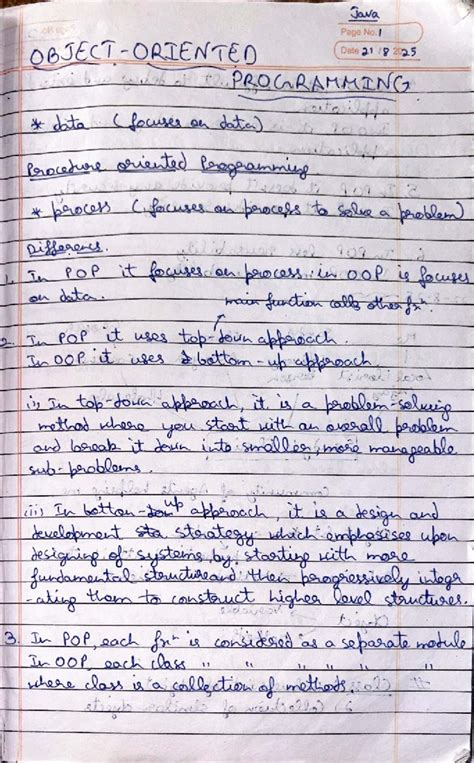 Java
Page No. 1
Date 21/8/2025
OBJECT-ORIENTED
PROGRAMMING
* data (focuses on data)
Procedure oriented Programming
* process (focuses on process to solve a problem)
Difference.
1. In POP it focuses on process in OOP is focuses
on data.
main function calls other fxⁿ.
2. In POP it uses top-down approach.
In OOP it uses bottom-up approach.
i) In top-down approach, it is a problem-solving
method where you start with an overall problem
and break it down into smaller, more manageable
sub-problems.
ii) In bottom-up approach, it is a design and
development strategy which emphasises upon
designing of systems by starting with more
fundamental structure and then progressively integr
-ating them to construct higher level structures.
3. In POP, each fxⁿ is considered as a separate module
In OOP, each class " " " " " "
where class is a collection of methods.